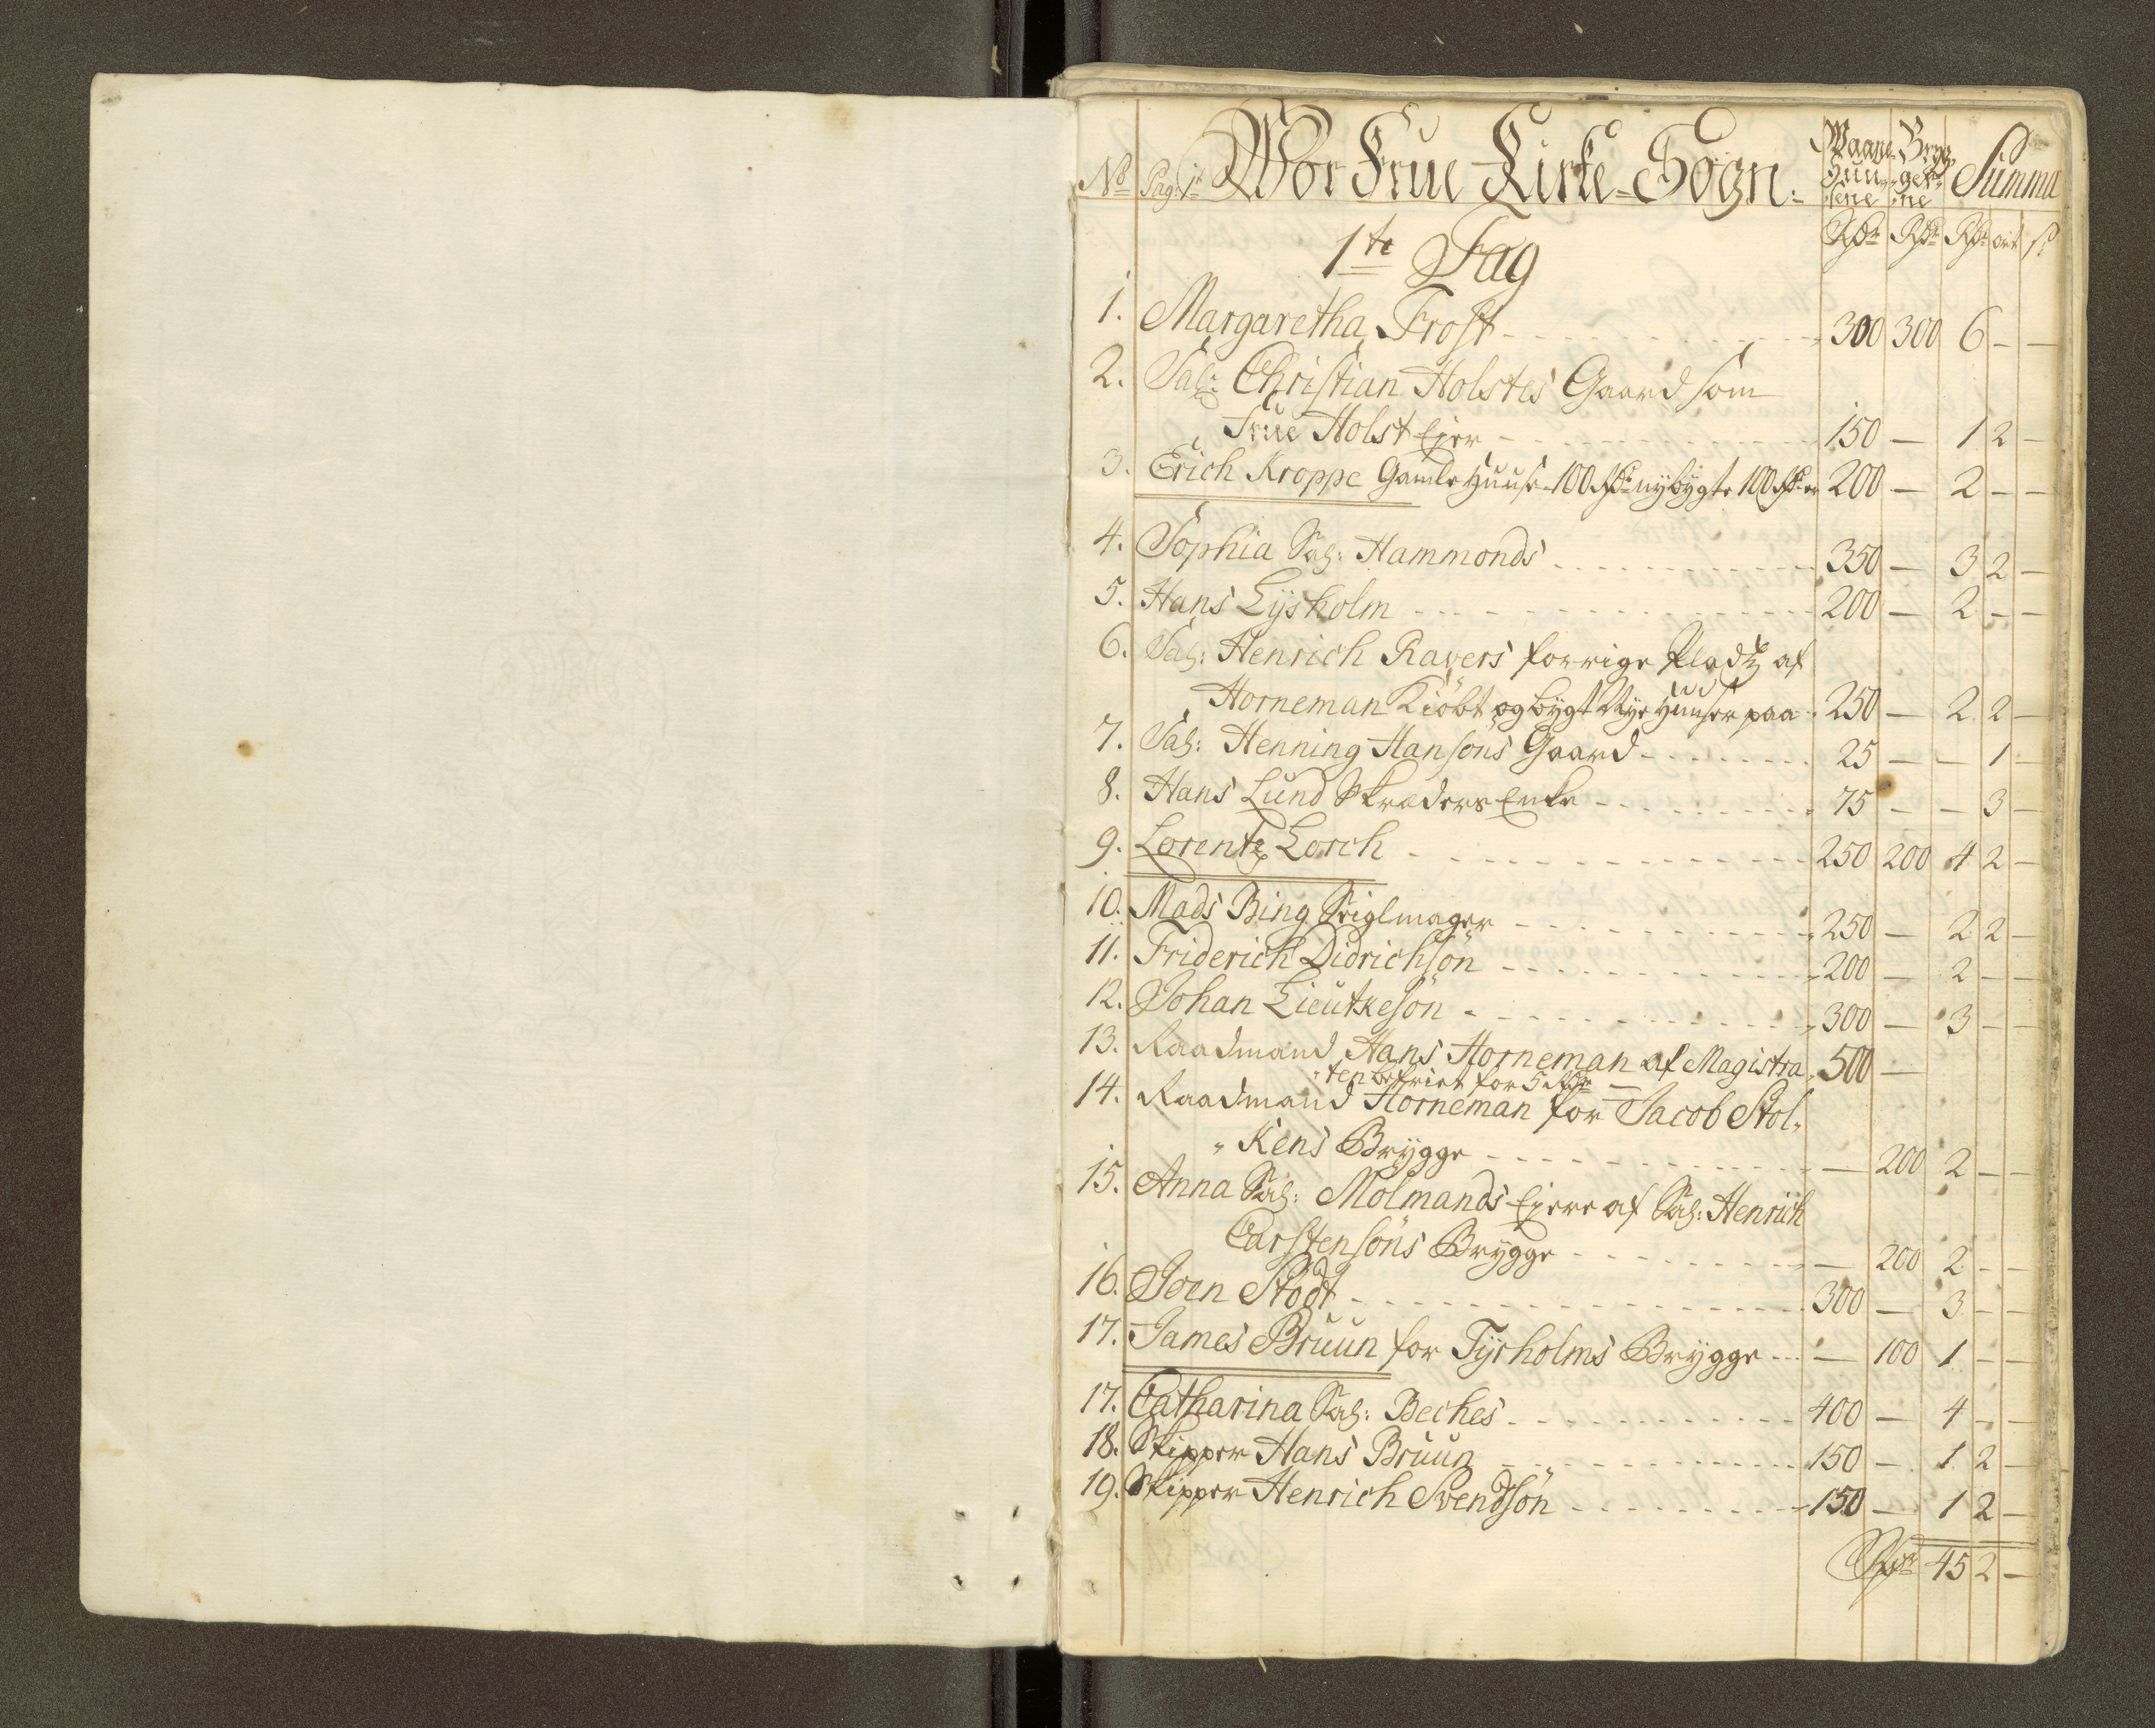 No Pag: 1 Wor Frue Kirke-Sogn. Waane- Brÿg- Summa
huu- ger-
sene ne
1te Fag Rdr Rdr Rdr ort s
1. Margaretha Frost - 300 300 6 - -
2. Sal: Christian Holstes Gaard som
Frue Holst Ejer - 150 - 1 2 -
3. Erich Kroppe Gamle Huuse 100 Rdr nÿbÿgte 100 Rdr er 200 - 2 - -
4. Sophia Sal: Hammonds - 350 - 3 2 -
5. Hans Lÿsholm - 200 - 2 - -
6. Sal: Henrich Ravers forrige Pladtz af
Horneman Kiöbt og bÿgt Nÿe Huuser paa 250 - 2 2 -
7. Sal: Henning Hansöns Gaard - 25 - - 1 -
8. Hans Lund Skræders Enke - 75 - - 3 -
9. Lorentz Lorch - 250 200 4 2 -
10. Mads Bing Seiglmager - 250 - 2 2 -
11. Friderich Didrichsön - 200 - 2 - -
12. Johan Lieutkesön - 300 - 3 - -
13. Raadmand Hans Horneman af Magistra- 500 -
"ten befriet for 5 Rdr -
14. Raadmand Horneman for Jacob Stol"
"Kens Brÿgge - - 200 2 - -
15. Anna Sal: Mölmands Ejere af Sal: Henrich
Carstensöns Brÿgge - - 200 2 - -
16. Joen Stodt - 300 - 3 - -
17. James Bruun for Tÿrholms Brÿgge - - 100 1 - -
17. Catharina Sal: Beches - 400 - 4 - -
18. Skipper Hans Bruun - 150 - 1 2 -
19. Skipper Henrich Svendsön - 150 - 1 2 -
Rdr 45 2 -